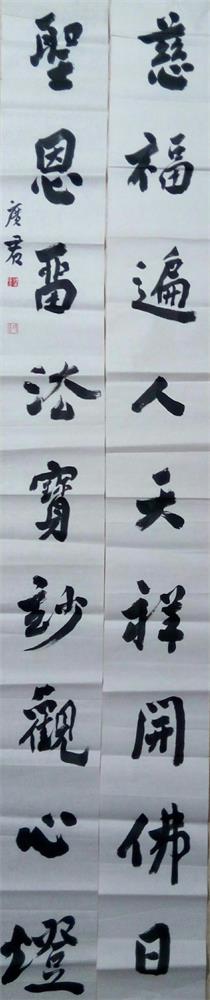 慈福遍人天祥開佛日
聖恩畱法寶玅觀心燈
廣君